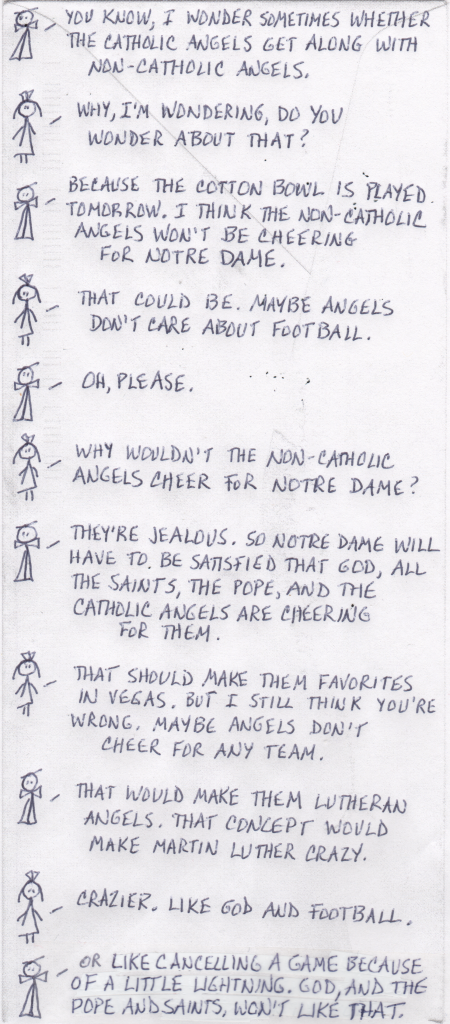 YOU KNOW, I WONDER SOMETIMES WHETHER
THE CATHOLIC ANGELS GET ALONG WITH
NON-CATHOLIC ANGELS.
WHY, I'M WONDERING, DO YOU
WONDER ABOUT THAT?
BECAUSE THE COTTON BOWL IS PLAYED
TOMORROW. I THINK THE NON-CATHOLIC
ANGELS WON'T BE CHEERING
FOR NOTRE DAME.
THAT COULD BE. MAYBE ANGELS
DON'T CARE ABOUT FOOTBALL.
OH, PLEASE.
WHY WOULDN'T THE NON-CATHOLIC
ANGELS CHEER FOR NOTRE DAME?
THEY'RE JEALOUS. SO NOTRE DAME WILL
HAVE TO BE SATISFIED THAT GOD, ALL
THE SAINTS, THE POPE, AND THE
CATHOLIC ANGELS ARE CHEERING
FOR THEM.
THAT SHOULD MAKE THEM FAVORITES
IN VEGAS. BUT I STILL THINK YOU'RE
WRONG. MAYBE ANGELS DON'T
CHEER FOR ANY TEAM.
THAT WOULD MAKE THEM LUTHERAN
ANGELS. THAT CONCEPT WOULD
MAKE MARTIN LUTHER CRAZY.
CRAZIER. LIKE GOD AND FOOTBALL.
OR LIKE CANCELLING A GAME BECAUSE
OF A LITTLE LIGHTNING. GOD, AND THE
POPE AND SAINTS, WON'T LIKE THAT.